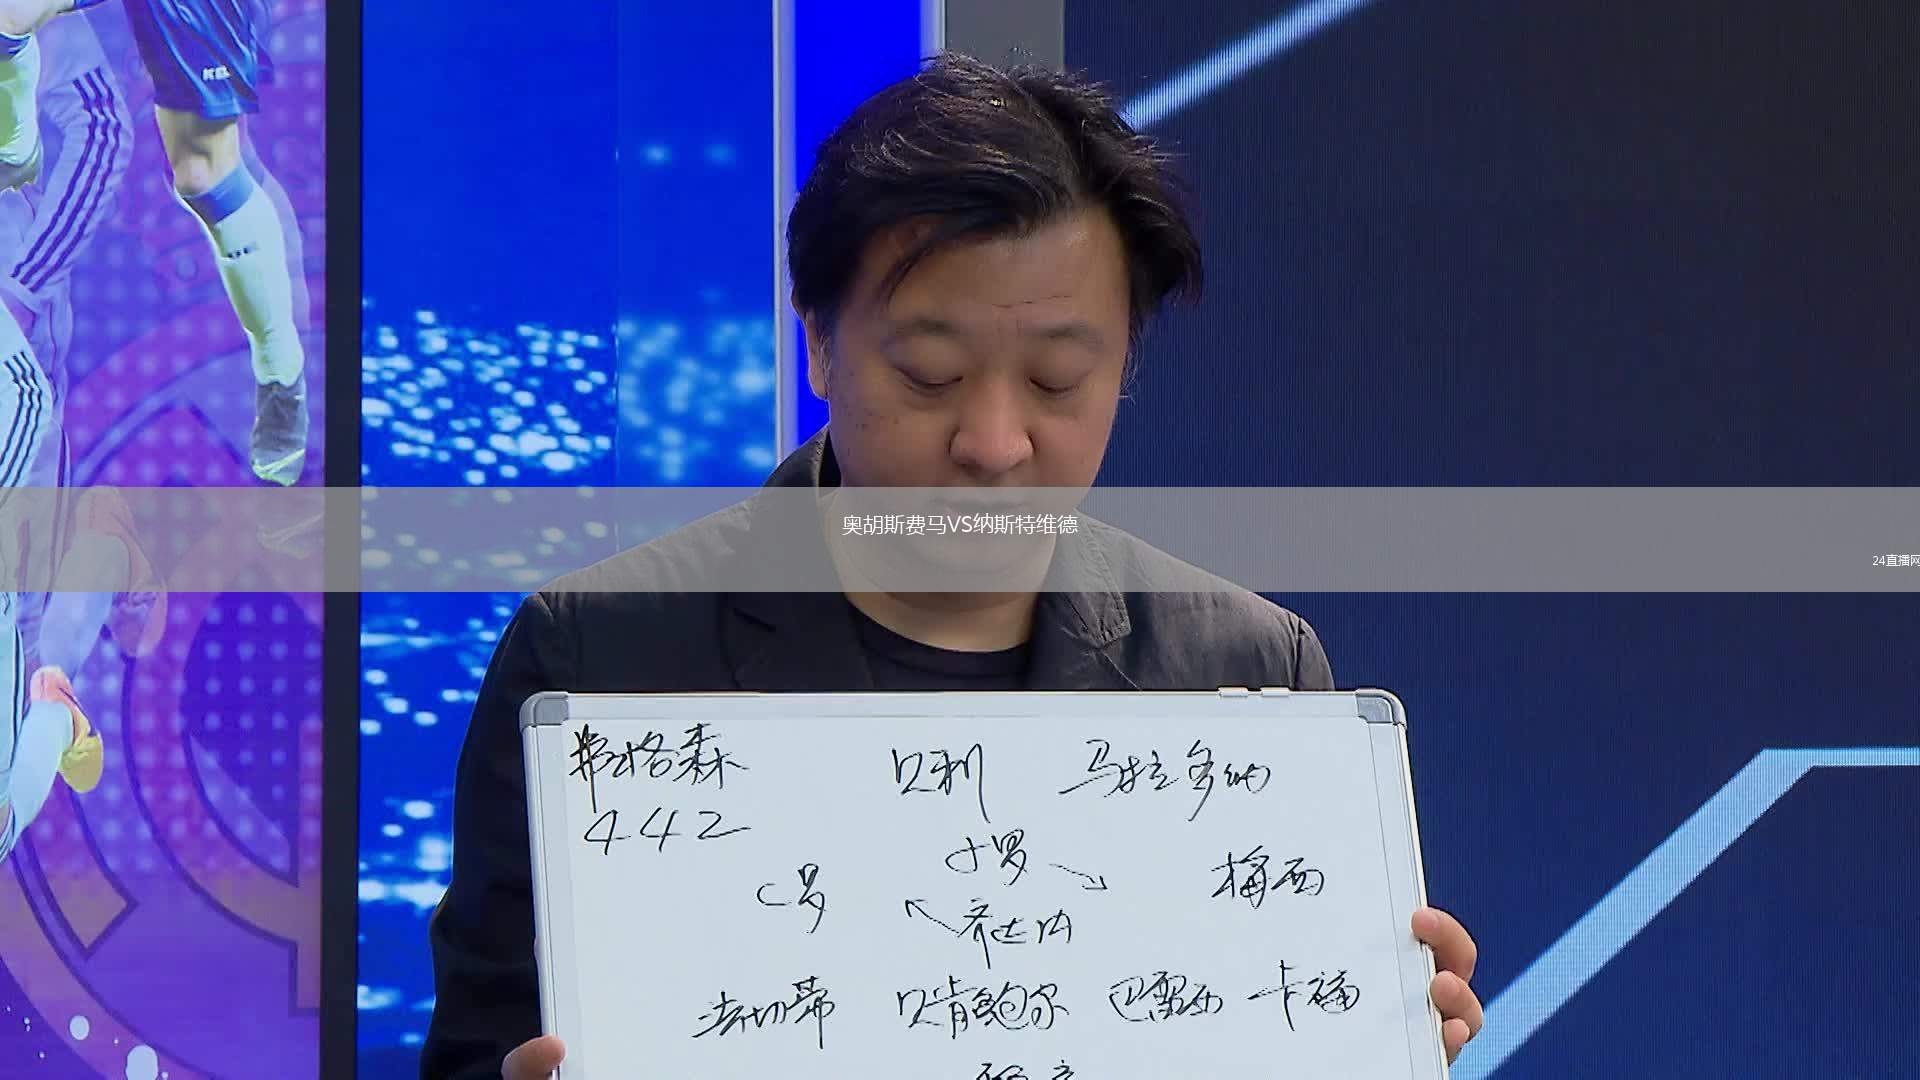 奥胡斯费马VS纳斯特维德
24直播网
弗格森 贝利 马拉多纳
442
小罗
C罗 梅西
齐达内
法切蒂 贝肯鲍尔 巴雷西 卡福